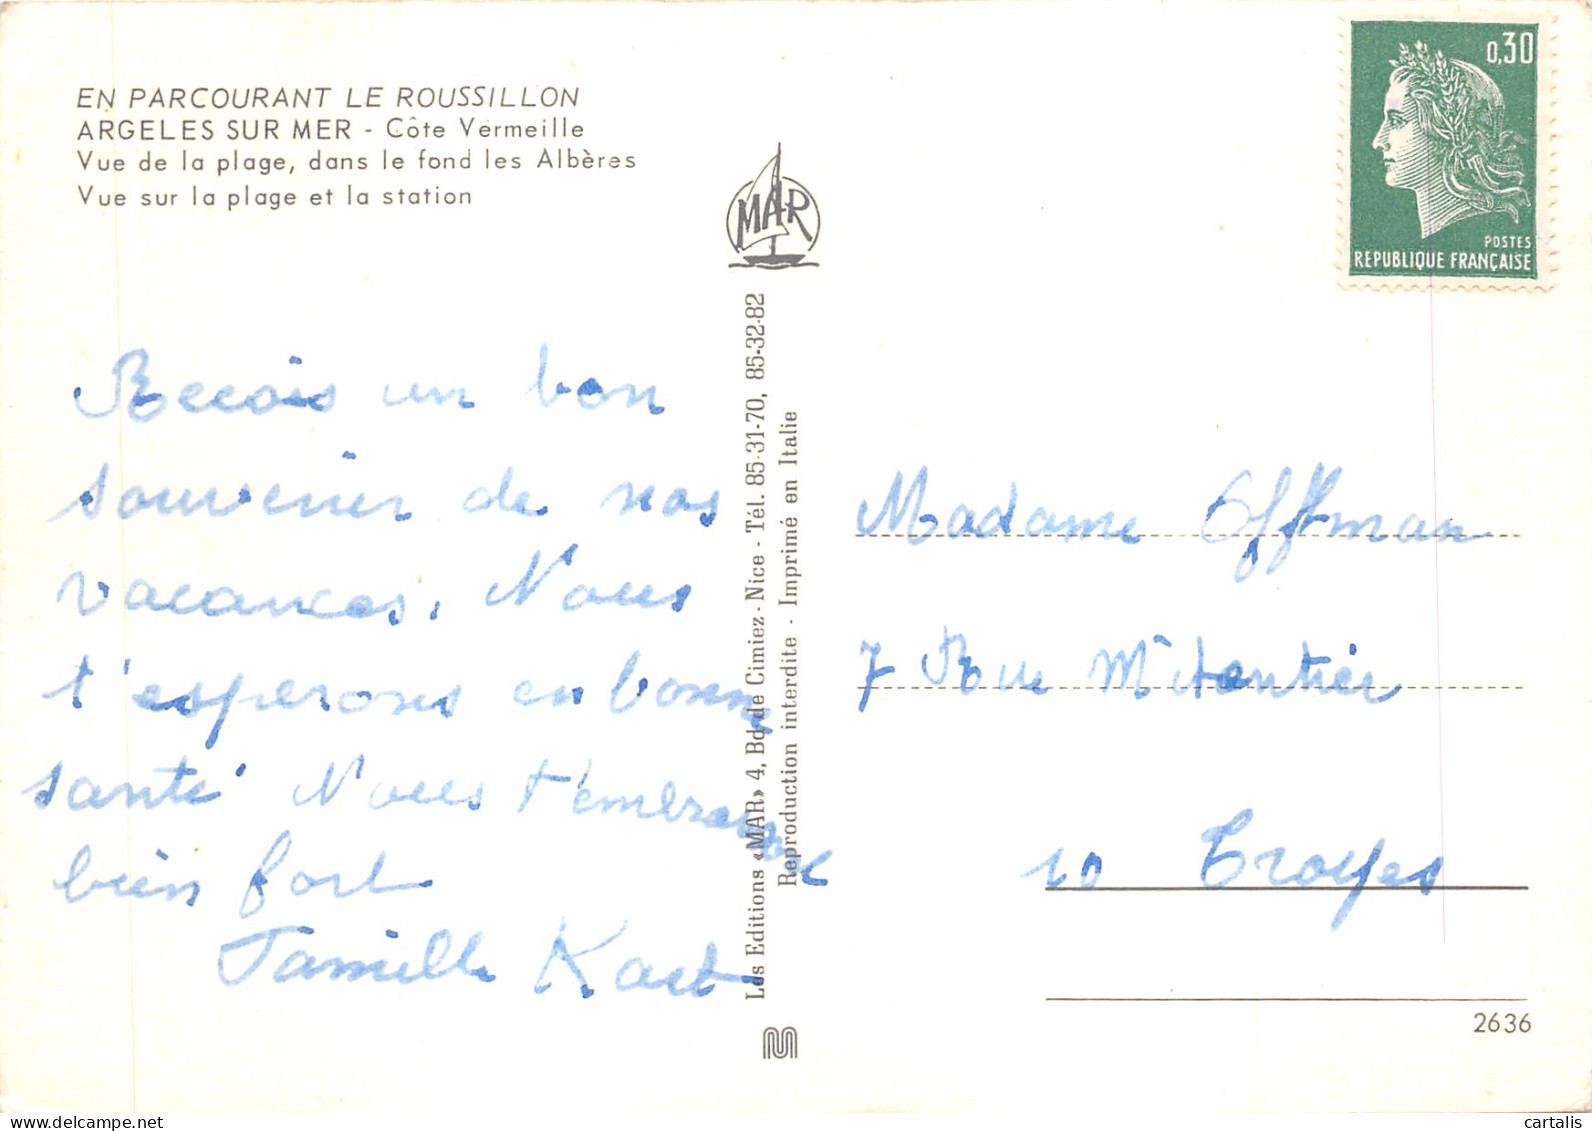 EN PARCOURANT LE ROUSSILLON
ARGELES SUR MER - Côte Vermeille
Vue de la plage, dans le fond les Albères
Vue sur la plage et la station
MAR
0,30
POSTES
REPUBLIQUE FRANÇAISE
Recois un bon
souvenir de nos
vacances. Nous
t'esperons en bonne
santé Nous t'embrassons
bien fort
Famille Kast
Les Editions «MAR» 4, Bd de Cimiez - Nice - Tél. 85-31-70, 85-32-82
Reproduction interdite - Imprimé en Italie
Madame Offman
7 Rue Mitantier
10 Troyes
2636
cartalis